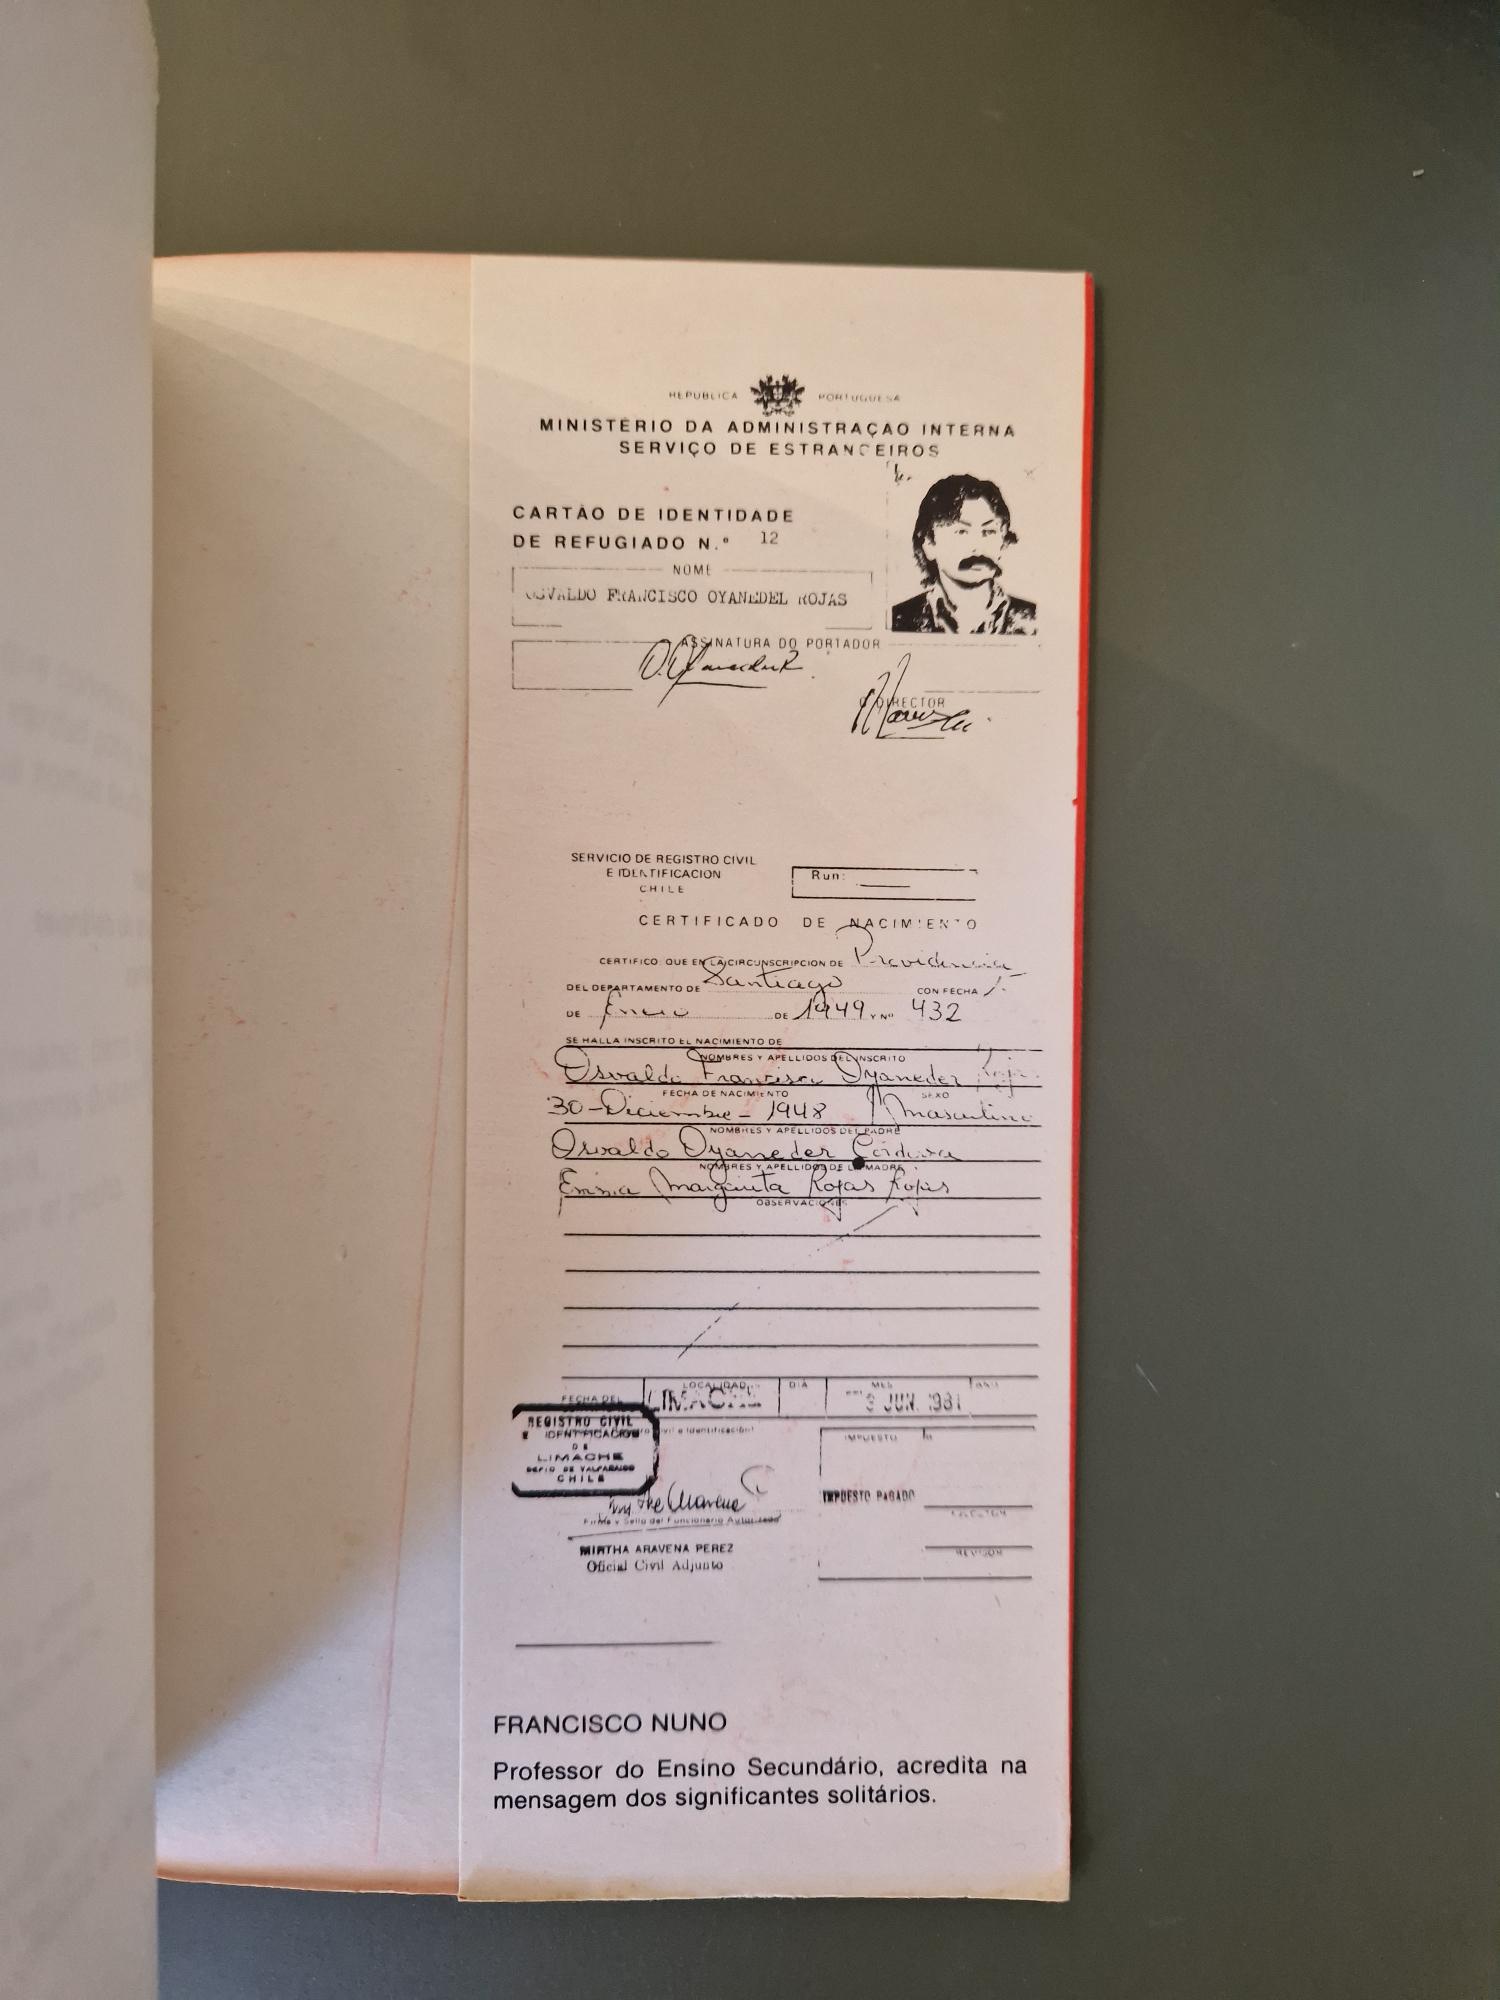 REPUBLICA PORTUGUESA
MINISTERIO DA ADMINISTRAÇAO INTERNA
SERVIÇO DE ESTRANCEIROS
CARTÃO DE IDENTIDADE
DE REFUGIADO N.º 12
NOME
OSVALDO FRANCISCO OYANEDEL ROJAS
ASSINATURA DO PORTADOR
O DIRECTOR
SERVICIO DE REGISTRO CIVIL
E IDENTIFICACION
CHILE
Run:
CERTIFICADO DE NACIMIENTO
CERTIFICO: QUE EN LA CIRCUNSCRIPCION DE Providencia
DEL DEPARTAMENTO DE Santiago CON FECHA
DE Enero DE 1949 Y Nº 432
SE HALLA INSCRITO EL NACIMIENTO DE
NOMBRES Y APELLIDOS DEL INSCRITO
Osvaldo Francisco Oyanedel Rojas
FECHA DE NACIMIENTO SEXO
30-Diciembre-1948 Masculino
NOMBRES Y APELLIDOS DEL PADRE
Osvaldo Oyanedel Córdova
NOMBRES Y APELLIDOS DE LA MADRE
Emma Margarita Rojas Rojas
OBSERVACIONES
LOCALIDAD DIA MES AÑO
FECHA DEL LIMACHE 3 JUN. 1981
REGISTRO CIVIL
E IDENTIFICACION
DE
LIMACHE
DEPTO DE VALPARAISO
CHILE
IMPUESTO
IMPUESTO PAGADO
Firma y Sello del Funcionario Autorizado
REVISOR
MIRTHA ARAVENA PEREZ
Oficial Civil Adjunto
FRANCISCO NUNO
Professor do Ensino Secundário, acredita na
mensagem dos significantes solitários.